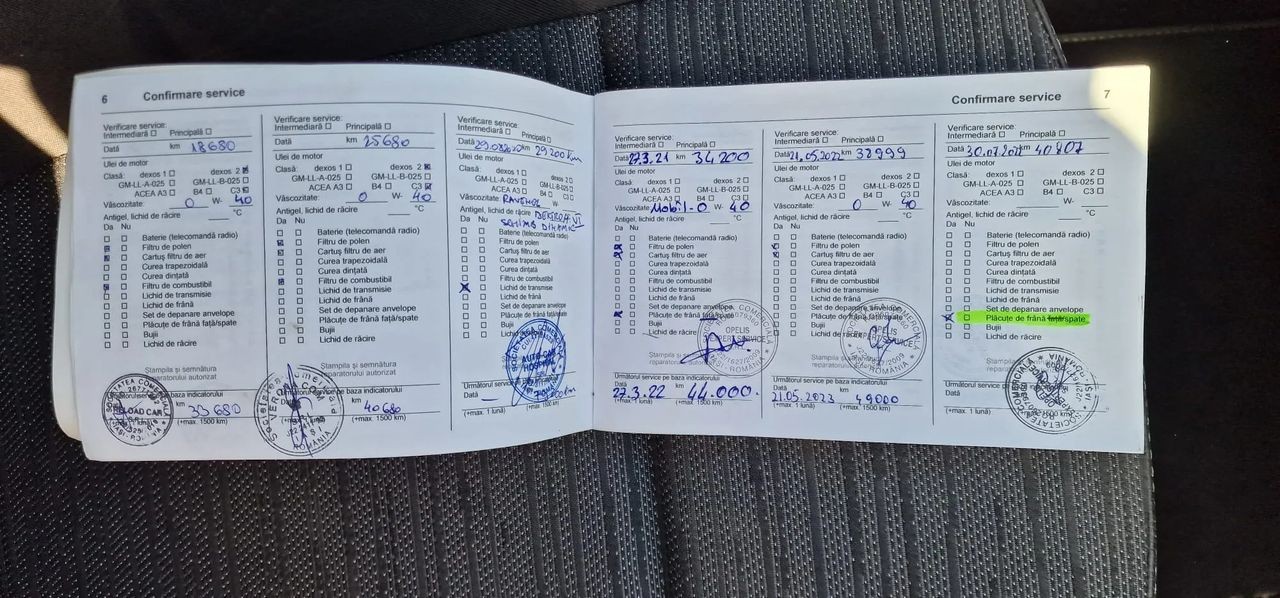 6 Confirmare service
Verificare service:
Intermediară ☐ Principală ☐
Data km 18680
Ulei de motor
Clasă: dexos 1 ☐ dexos 2 ☒
GM-LL-A-025 ☐ GM-LL-B-025 ☐
ACEA A3 ☐ B4 ☐ C3 ☒
Vâscozitate: 0 W- 40
Antigel, lichid de răcire °C
Da Nu
Baterie (telecomandă radio)
Filtru de polen
Cartuş filtru de aer
Curea trapezoidală
Curea dinţată
Filtru de combustibil
Lichid de transmisie
Lichid de frână
Set de depanare anvelope
Plăcuţe de frână faţă/spate
Bujii
Lichid de răcire
Stampila şi semnătura
reparatorului autorizat
Următorul service pe baza indicatorului
km
33680
(+max. 1500 km)
Verificare service:
Intermediară ☐ Principală ☐
Data km 25680
Ulei de motor
Clasă: dexos 1 ☐ dexos 2 ☒
GM-LL-A-025 ☐ GM-LL-B-025 ☐
ACEA A3 ☐ B4 ☐ C3 ☒
Vâscozitate: 0 W- 40
Antigel, lichid de răcire °C
Da Nu
Baterie (telecomandă radio)
Filtru de polen
Cartuş filtru de aer
Curea trapezoidală
Curea dinţată
Filtru de combustibil
Lichid de transmisie
Lichid de frână
Set de depanare anvelope
Plăcuţe de frână faţă/spate
Bujii
Lichid de răcire
Stampila şi semnătura
reparatorului autorizat
Următorul service pe baza indicatorului
km
40680
(+max. 1500 km)
ROMANIA
Verificare service:
Intermediară ☐ Principală ☐
Data km 29200 km
Ulei de motor
Clasă: dexos 1 ☐ dexos 2 ☐
GM-LL-A-025 ☐ GM-LL-B-025 ☐
ACEA A3 ☐ B4 ☐ C3 ☐
Vâscozitate: RAVENOL W-
Antigel, lichid de răcire DEXRON VI
Da Nu
SCHIMB DINAMIC
Baterie (telecomandă radio)
Filtru de polen
Cartuş filtru de aer
Curea trapezoidală
Curea dinţată
Filtru de combustibil
Lichid de transmisie
Lichid de frână
Set de depanare anvelope
Plăcuţe de frână faţă/spate
Bujii
Lichid de răcire
Următorul service pe baza indicatorului
Data km
(+max. 1 lună) (+max. 1500 km)
Confirmare service 7
Verificare service:
Intermediară ☐ Principală ☐
Data 27.3.21 km 34200
Ulei de motor
Clasă: dexos 1 ☐ dexos 2 ☐
GM-LL-A-025 ☐ GM-LL-B-025 ☐
ACEA A3 ☐ B4 ☐ C3 ☐
Vâscozitate: Mobil-0 W- 40
Antigel, lichid de răcire °C
Da Nu
Baterie (telecomandă radio)
Filtru de polen
Cartuş filtru de aer
Curea trapezoidală
Curea dinţată
Filtru de combustibil
Lichid de transmisie
Lichid de frână
Set de depanare anvelope
Plăcuţe de frână faţă/spate
Bujii
Lichid de răcire
OPELIS
EXPERT SERVICE
ROMANIA
Stampila şi semnătura
reparatorului
Următorul service pe baza indicatorului
Data km
27.3.22 44.000.
(+max. 1 lună) (+max. 1500 km)
Verificare service:
Intermediară ☐ Principală ☐
Data 21.05.2022 km 38999
Ulei de motor
Clasă: dexos 1 ☐ dexos 2 ☐
GM-LL-A-025 ☐ GM-LL-B-025 ☐
ACEA A3 ☐ B4 ☐ C3 ☐
Vâscozitate: 0 W- 40
Antigel, lichid de răcire °C
Da Nu
Baterie (telecomandă radio)
Filtru de polen
Cartuş filtru de aer
Curea trapezoidală
Curea dinţată
Filtru de combustibil
Lichid de transmisie
Lichid de frână
Set de depanare anvelope
Plăcuţe de frână faţă/spate
Bujii
Lichid de răcire
OPELIS
EXPERT SERVICE
ROMANIA
Stampila şi semnătura
reparatorului
Următorul service pe baza indicatorului
Data km
21.05.2023 49000
(+max. 1 lună) (+max. 1500 km)
Verificare service:
Intermediară ☐ Principală ☐
Data km 40807
Ulei de motor
Clasă: dexos 1 ☐ dexos 2 ☐
GM-LL-A-025 ☐ GM-LL-B-025 ☐
ACEA A3 ☐ B4 ☐ C3 ☐
Vâscozitate: W-
Antigel, lichid de răcire °C
Da Nu
Baterie (telecomandă radio)
Filtru de polen
Cartuş filtru de aer
Curea trapezoidală
Curea dinţată
Filtru de combustibil
Lichid de transmisie
Lichid de frână
Set de depanare anvelope
Plăcuţe de frână faţă/spate
Bujii
Lichid de răcire
Stampila şi semnătura
reparatorului
Următorul service
Data
(+max. 1 lună)